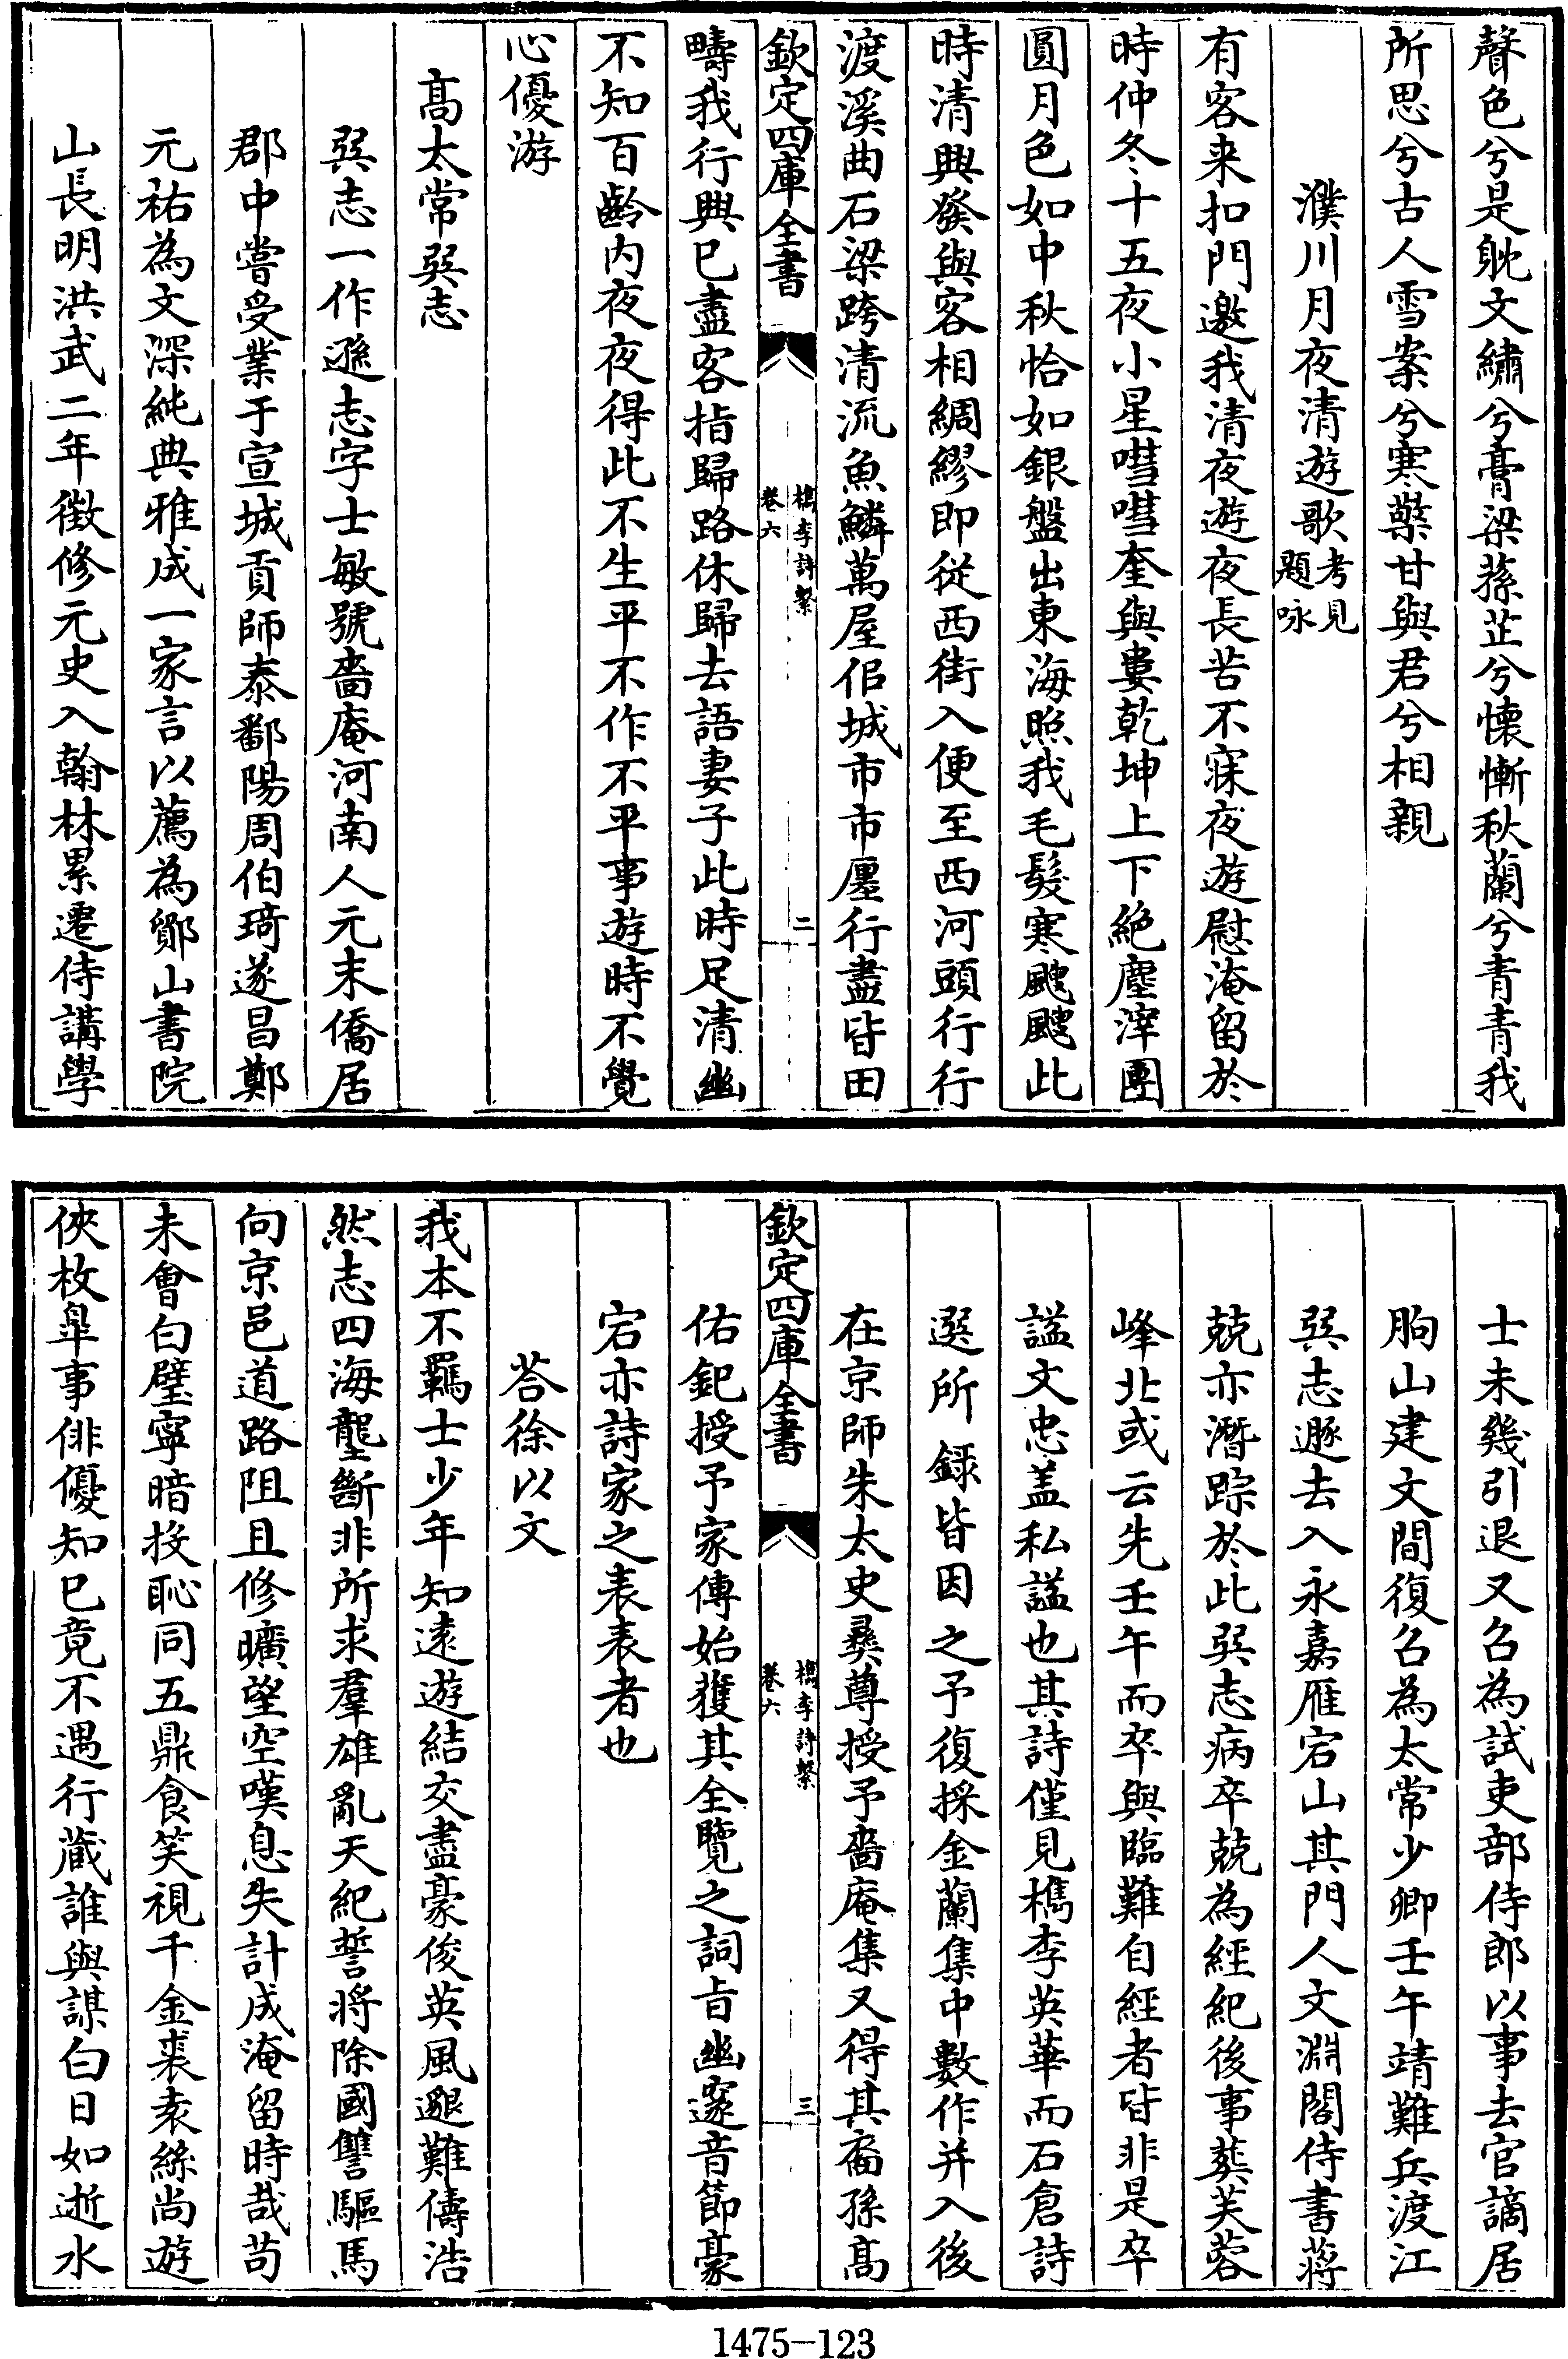 聲色兮是躭文繡兮膏梁蓀芷兮懐慚秋蘭兮青青我
所思兮古人雪案兮寒檠甘與君兮相親
濮川月夜清遊歌考見題咏
有客来扣門邀我清夜遊夜長苦不寐夜遊慰淹留於
時仲冬十五夜小星嘒嘒奎與婁乾坤上下絶塵滓團
圓月色如中秋恰如銀盤出東海照我毛髮寒颼颼此
時清興發與客相綢繆即従西街入便至西河頭行行
渡溪曲石梁跨清流魚鱗萬屋侶城市市廛行盡皆田
欽定四庫全書
檇李詩繫
卷六
二
疇我行興已盡客指歸路休歸去語妻子此時足清幽
不知百齡内夜夜得此不生平不作不平事遊時不覺
心優游
髙太常㢲志
㢲志一作遜志字士敏號嗇庵河南人元末僑居
郡中嘗受業于宣城貢師泰鄱陽周伯琦遂昌鄭
元祐為文深純典雅成一家言以薦為鄮山書院
山長明洪武二年徴修元史入翰林累遷侍講學
士未幾引退又召為試吏部侍郎以事去官謫居
朐山建文間復召為太常少卿壬午靖難兵渡江
㢲志遯去入永嘉雁宕山其門人文淵閣侍書蔣
兢亦潛踪於此㢲志病卒兢為經紀後事葬芙蓉
峰北或云先壬午而卒與臨難自經者皆非是卒
諡文忠盖私諡也其詩僅見檇李英華而石倉詩
選所錄皆因之予復採金蘭集中數作并入後
在京師朱太史彛尊授予嗇庵集又得其裔孫髙
欽定四庫全書
檇李詩繫
卷六
三
佑釲授予家傳始獲其全覽之詞旨幽邃音節豪
宕亦詩家之表表者也
荅徐以文
我本不羈士少年知遠遊結交盡豪俊英風邈難儔浩
然志四海壟斷非所求羣雄亂天紀誓将除國讐驅馬
向京邑道路阻且修曠望空嘆息失計成淹留時哉苟
未會白璧寧暗投恥同五鼎食笑視千金裘袁絲尚遊
俠枚臯事俳優知已竟不遇行蔵誰與謀白日如逝水
1475-123